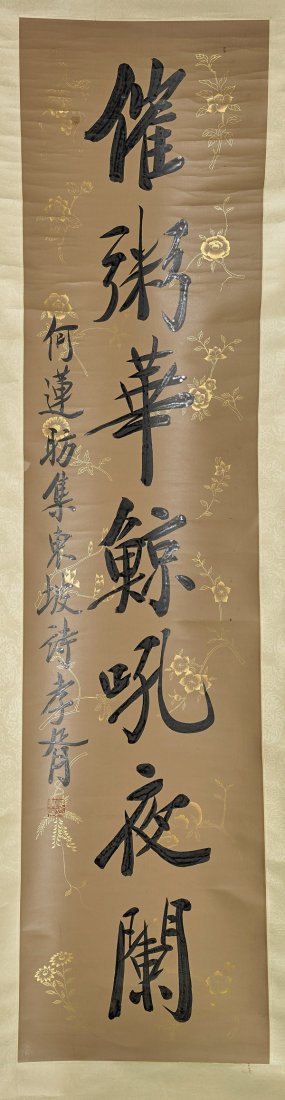 催粥華鯨吼夜闌
何蓮舫集東坡詩孝胥